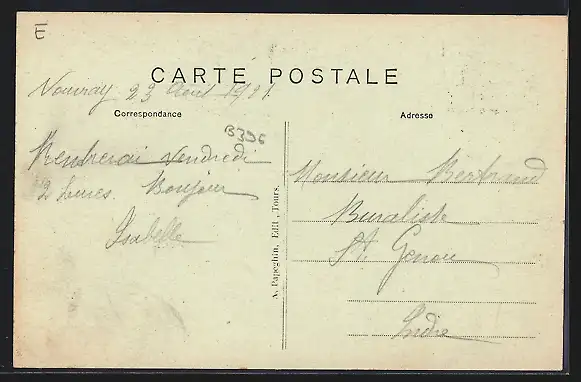 E
CARTE POSTALE
Vouvray 23 Août 1921
Correspondance
Adresse
B396
Rentrerai Vendredi
2 heures. Bonjour
Isabelle
A. Papeghin, Edit., Tours.
Monsieur Bertrand
Buraliste
St. Genou
Indre